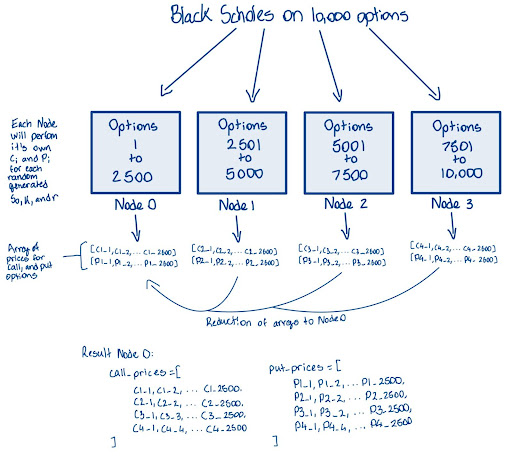 Black Scholes on 10,000 options
Each Node
will perform
it's own
Ci and Pi
for each
random
generated
So, K, and r
Options
1
to
2500
Node 0
Options
2501
to
5000
Node 1
Options
5001
to
7500
Node 2
Options
7501
to
10,000
Node 3
Array of
prices for
call, and put
options
[C1-1, C1-2, ... C1-2500]
[P1-1, P1-2, ... P1-2500]
[C2-1, C2-2, ... C2-2500]
[P2-1, P2-2, ... P2-2500]
[C3-1, C3-2, ... C3-2500]
[P3-1, P3-2, ... P3-2500]
[C4-1, C4-2, ... C4-2500]
[P4-1, P4-2, ... P4-2500]
Reduction of arrays to Node 0
Result Node 0:
call_prices = [
C1-1, C1-2, ... C1-2500,
C2-1, C2-2, ... C2-2500,
C3-1, C3-3, ... C3-2500,
C4-1, C4-4, ... C4-2500
]
put_prices = [
P1-1, P1-2, ... P1-2500,
P2-1, P2-2, ... P2-2500,
P3-1, P3-2, ... P3-2500,
P4-1, P4-4, ... P4-2500
]